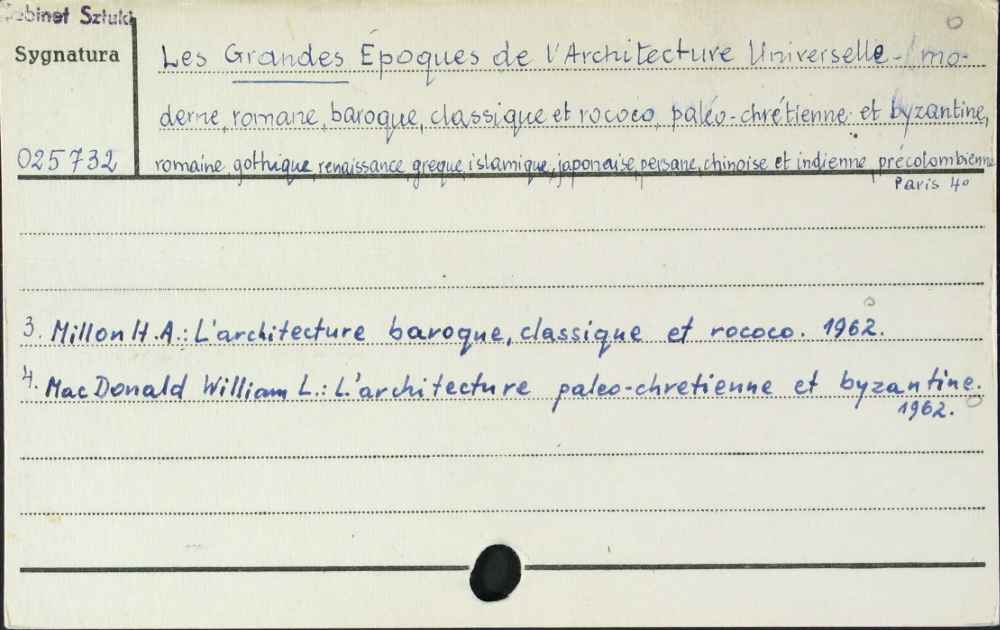 Gabinet Sztuki
Sygnatura
025732
Les Grandes Époques de l'Architecture Universelle - /mo-
derne, romane, baroque, classique et rococo, paléo-chrétienne et byzantine,
romaine, gothique, renaissance, greque, islamique, japonaise, persane, chinoise et indienne, précolombienne
Paris 4º
3. Millon H.A.: L'architecture baroque, classique et rococo. 1962.
4. MacDonald William L.: L'architecture paleo-chretienne et byzantine.
1962.